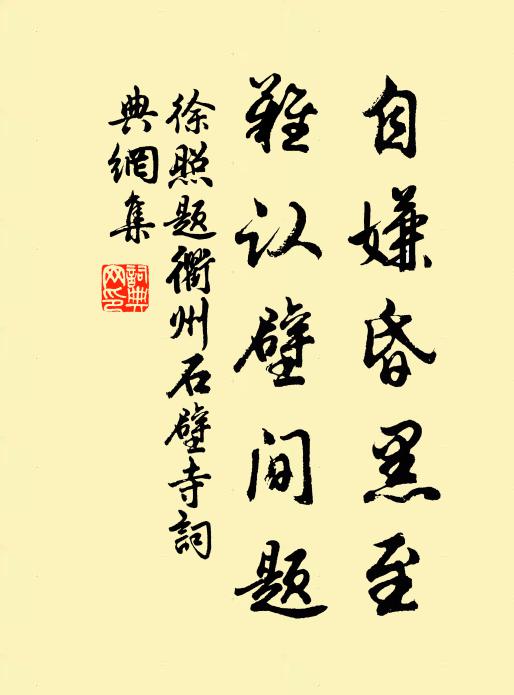 自嫌昏黑至
难认壁间题
徐照题衢州石壁寺詞
典網集
詞典网印